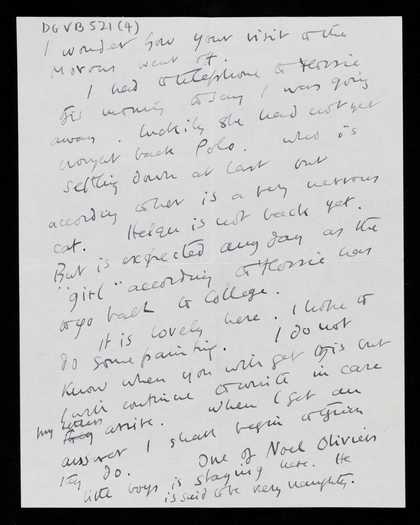 DGVB521(4)
I wonder how your visit to the
Morons went off.
I had to telephone to Flossie
this morning to say I was going
away. Luckily she had not yet
brought back Polo. Who is
settling down at last but
according to her is a very nervous
cat. is not back yet.
But is expected any day as the
"girl" according to Flossie has
to go back to College.
It is lovely here. I hope to
do some painting. I do not
know when you will get this but
I will continue to write in case
my letters
arrive. When I get an
answer I shall begin to think
they do. One of Noel Oliviers
little boys is staying here. He
is said to be very naughty.